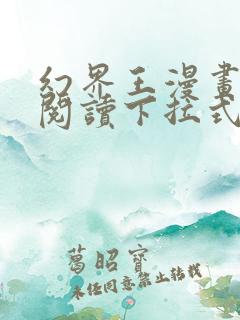 幻界王漫畫
閱讀下拉式
葛昭寶
未經同意禁止轉載